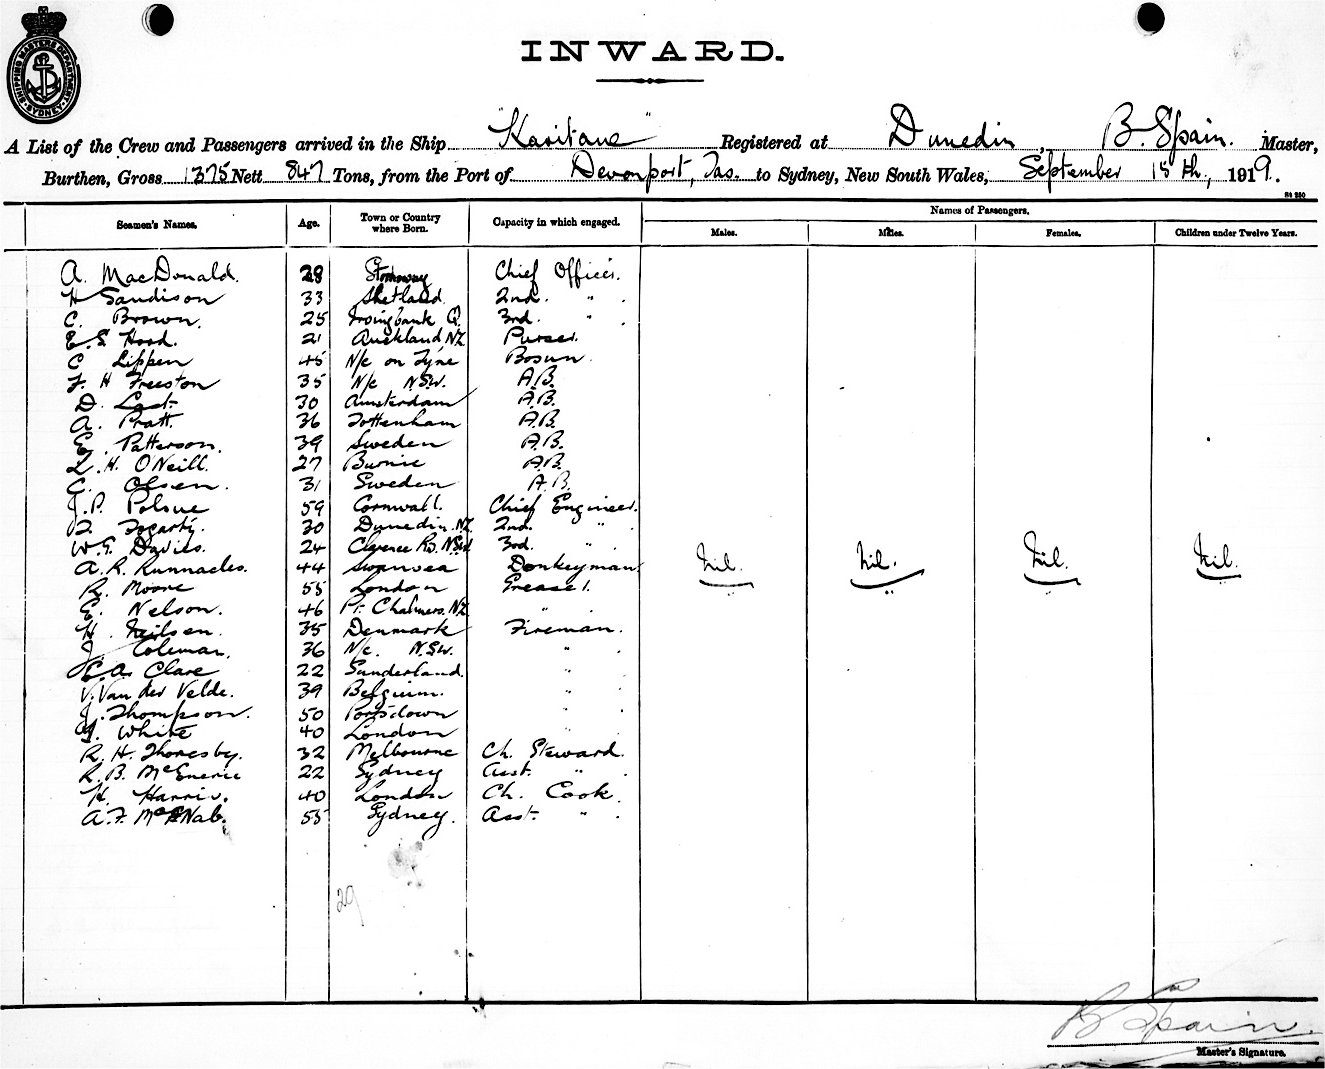 SHIPPING MASTERS DEPARTMENT SYDNEY
INWARD.
A List of the Crew and Passengers arrived in the Ship "Karitane" Registered at Dunedin, B. Spain. Master,
Burthen, Gross 1375 Nett 847 Tons, from the Port of Devonport, Tas. to Sydney, New South Wales, September 15th, 1919.
Seamen's Names. Age. Town or Country where Born. Capacity in which engaged. Names of Passengers.
Males. Males. Females. Children under Twelve Years.
A. MacDonald. 28 Stornoway Chief Officer.
H Sandison 33 Shetland. 2nd. " .
C. Brown. 25 Irvingbank Q. 3rd. " .
E. S. Hood. 21 Auckland, NZ Purser.
C Lippen 45 N/c on Tyne Bosun.
F. H Freeston 35 N/c N.S.W. A.B.
D. Last. 30 Amsterdam A.B.
A. Pratt. 36 Tottenham A.B.
E. Patterson. 39 Sweden A.B.
L. H. ONeill. 27 Burnie A.B.
C. Olsen. 31 Sweden A.B.
J. P. Polsue 59 Cornwall. Chief Engineer.
F. Fogarty. 30 Dunedin. NZ 2nd. " .
W. G. Davies. 24 Clarence R. NSW 3rd. " .
A. R. Runnacles. 44 Swansea Donkeyman
R. Moore 55 London Greaser.
E. Nelson. 46 Pt. Chalmers. NZ " .
H. Neilsen. 35 Denmark Fireman.
J. Coleman. 36 N/c. N.S.W. " .
C. A. Clare 22 Sunderland. " .
V. Van der Velde. 39 Belgium. " .
J. Thompson. 50 Portsdown " .
G. White 40 London " .
R. H. Thoresby. 32 Melbourne Ch. Steward.
R. B. McEnerie 22 Sydney Asst. " .
H. Harris. 40 London Ch. Cook.
A. F. McNab. 55 Sydney. Asst. " .
Nil. Nil. Nil. Nil.
29
B Spain.
Master's Signature.